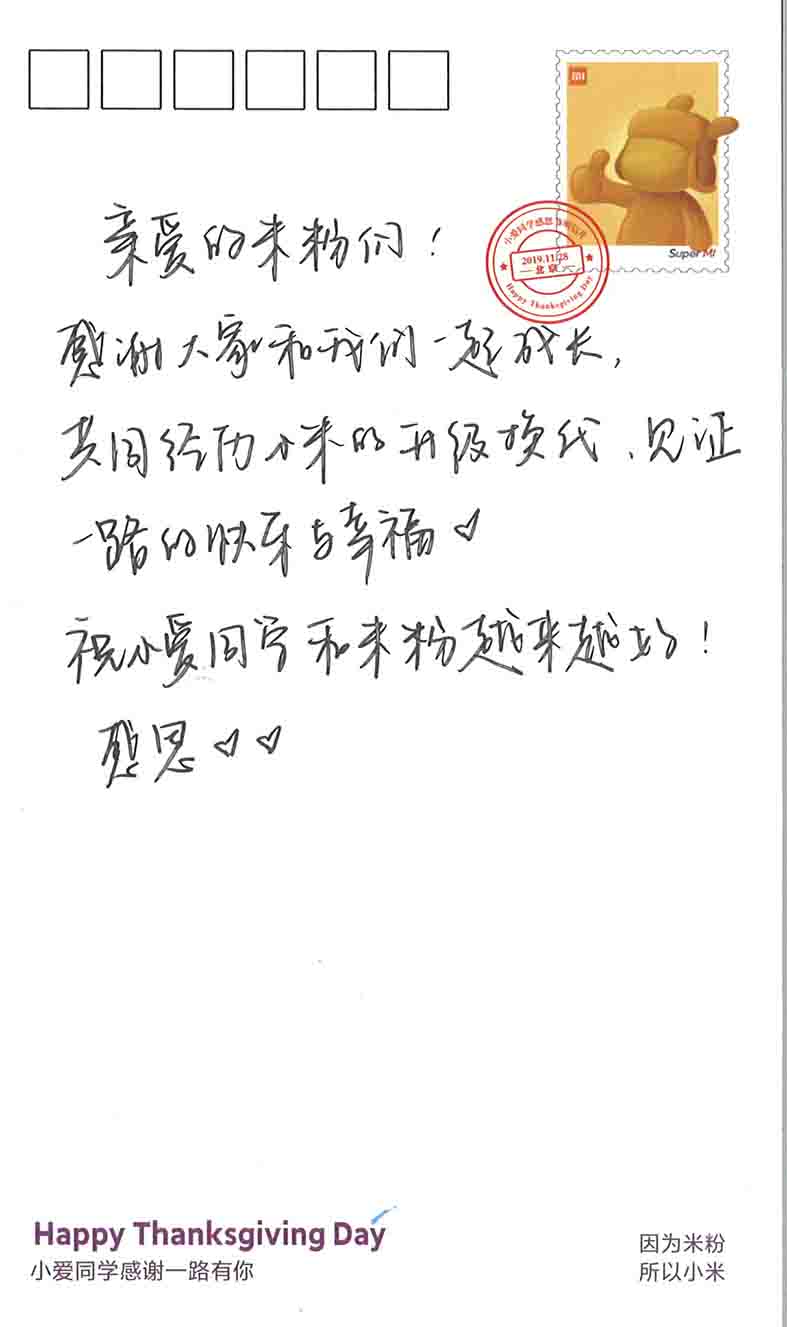 MI
Super MI
小爱同学感恩
2019.11.28
北京
Happy Thanksgiving Day
亲爱的米粉们！
感谢大家和我们一起成长，
共同经历小米的升级换代、见证
一路的快乐与幸福♡
祝小爱同学和米粉越来越好！
感恩♡♡
Happy Thanksgiving Day
小爱同学感谢一路有你
因为米粉
所以小米